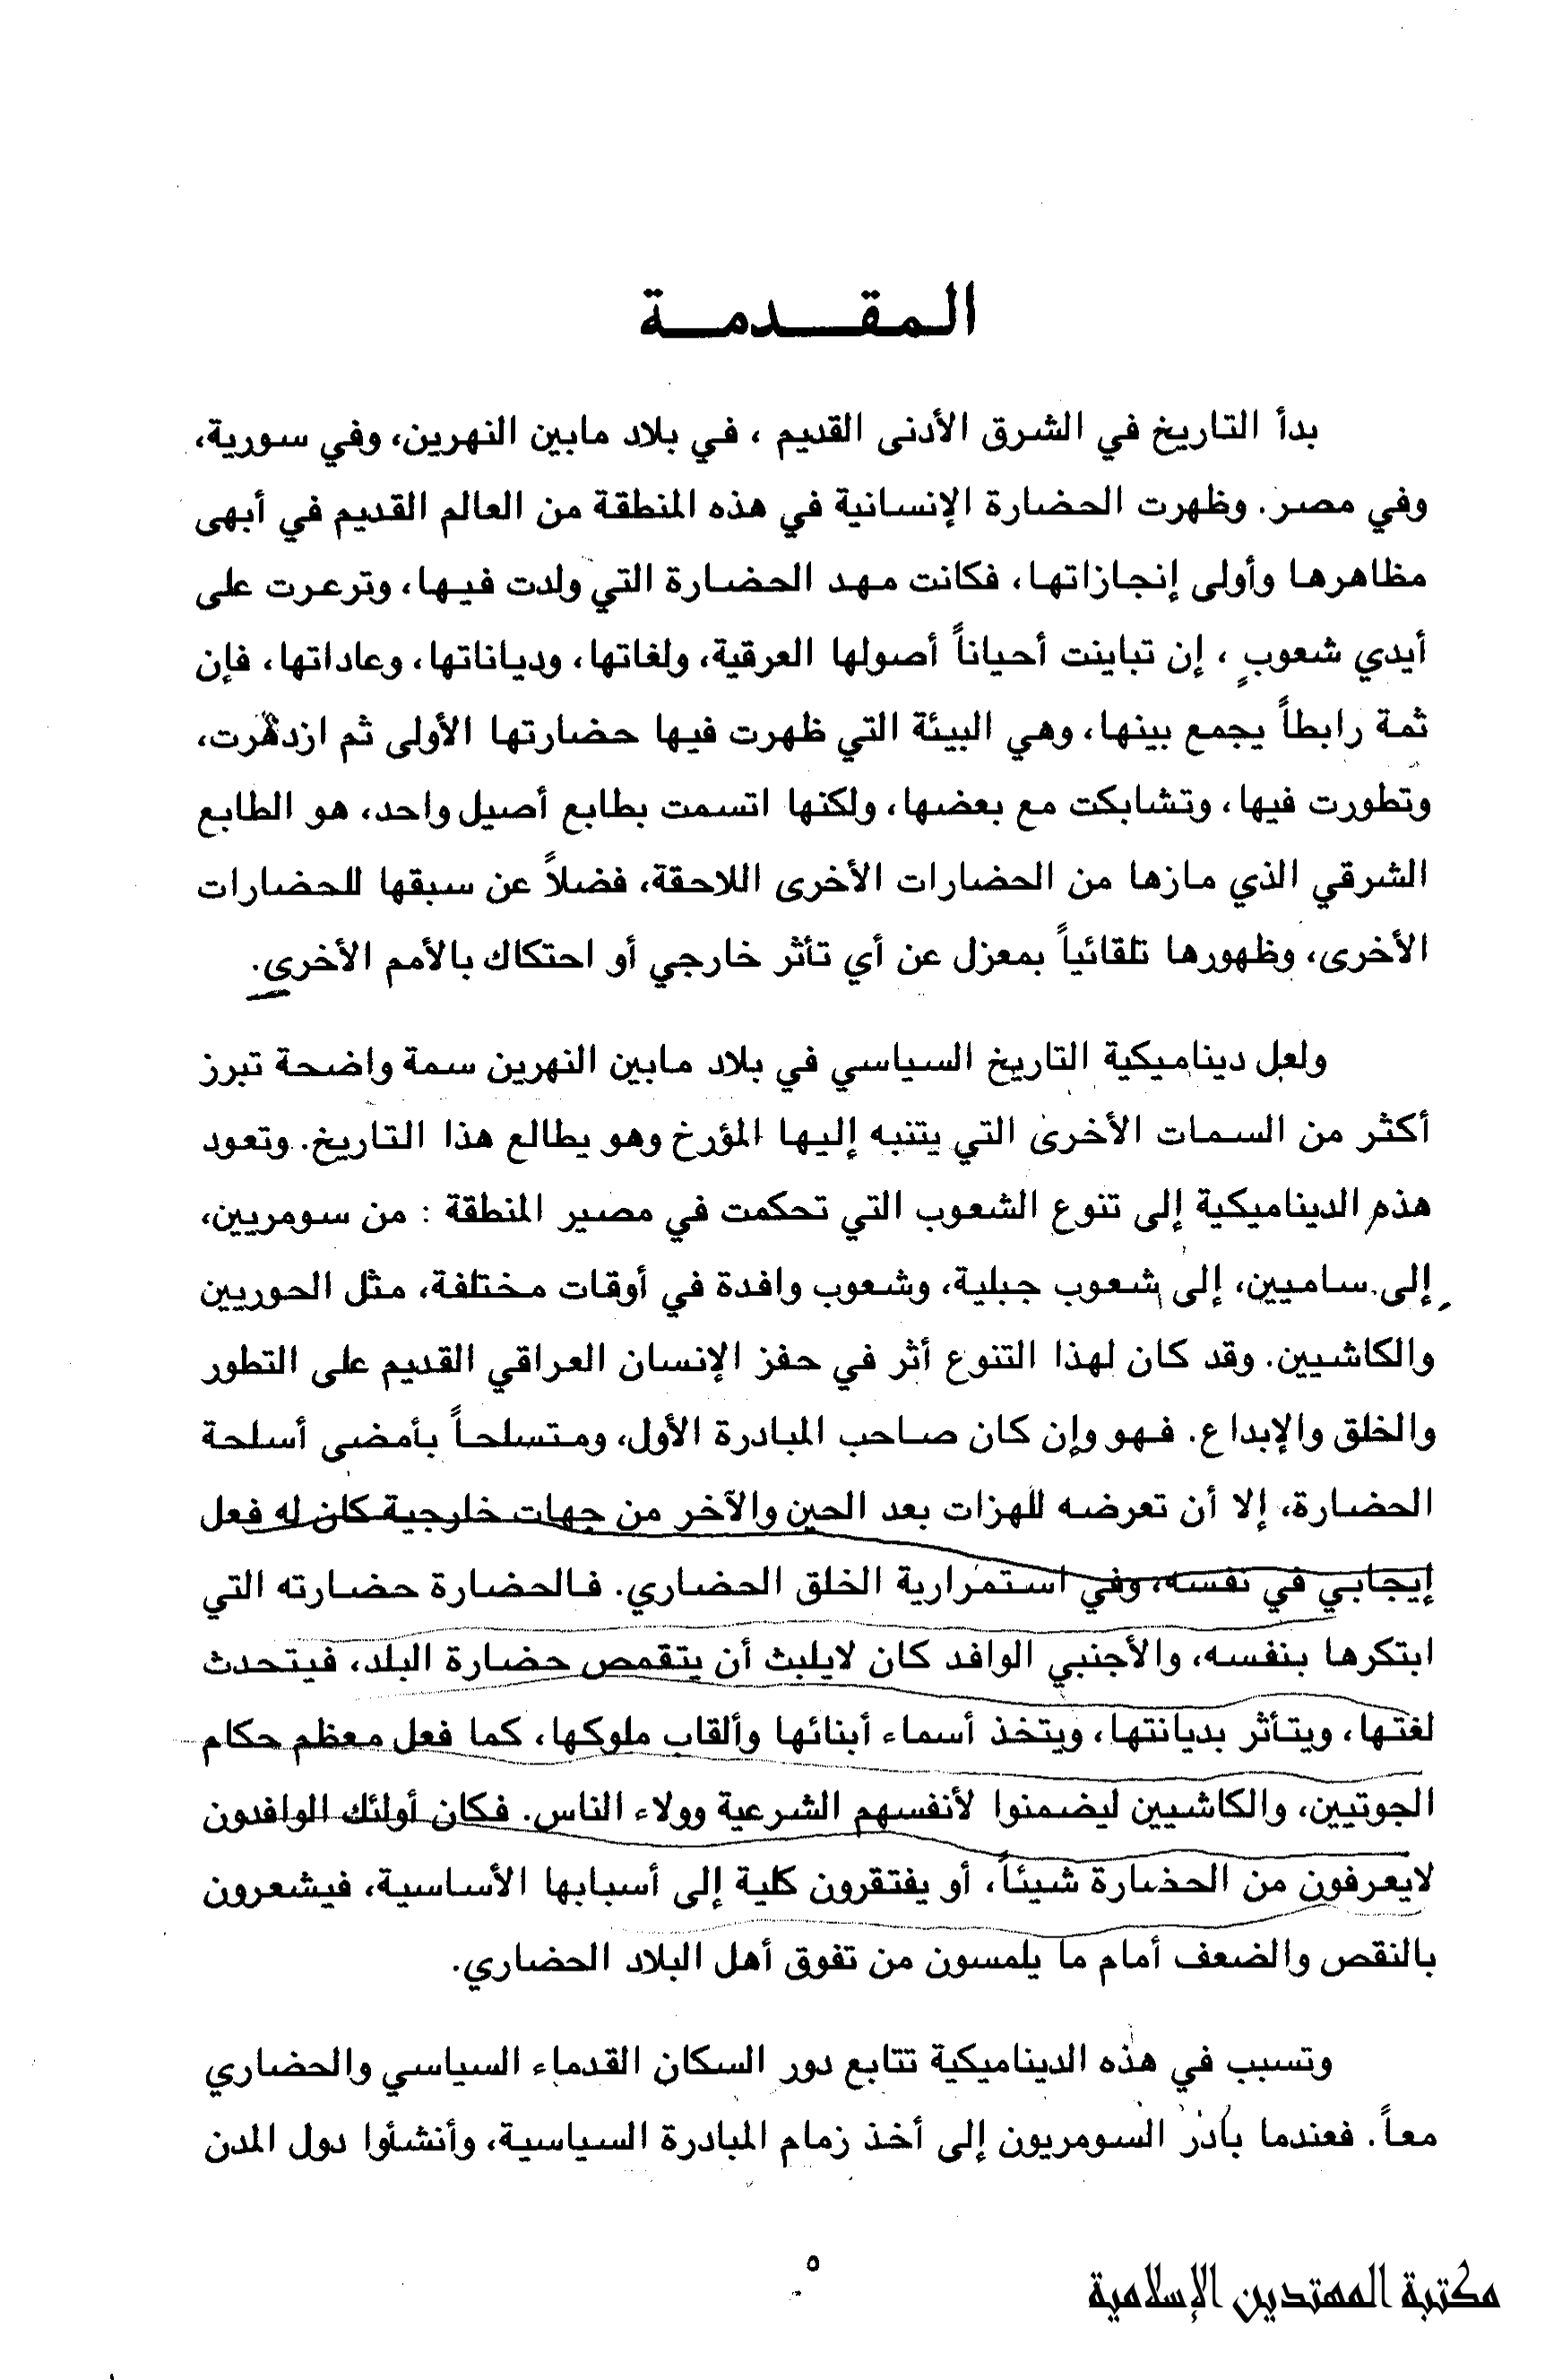 المقدمة
بدأ التاريخ في الشرق الأدنى القديم ، في بلاد مابين النهرين، وفي سورية،
وفي مصر. وظهرت الحضارة الإنسانية في هذه المنطقة من العالم القديم في أبهى
مظاهرها وأولى إنجازاتها، فكانت مهد الحضارة التي ولدت فيها، وترعرت على
أيدي شعوبٍ ، إن تباينت أحياناً أصولها العرقية، ولغاتها، ودياناتها، وعاداتها، فإن
ثمة رابطاً يجمع بينها، وهي البيئة التي ظهرت فيها حضارتها الأولى ثم ازدهرت،
وتطورت فيها، وتشابكت مع بعضها، ولكنها اتسمت بطابع أصيل واحد، هو الطابع
الشرقي الذي مازها من الحضارات الأخرى اللاحقة، فضلاً عن سبقها للحضارات
الأخرى، وظهورها تلقائياً بمعزل عن أي تأثر خارجي أو احتكاك بالأمم الأخرى.
ولعل ديناميكية التاريخ السياسي في بلاد مابين النهرين سمة واضحة تبرز
أكثر من السمات الأخرى التي يتنبه إليها المؤرخ وهو يطالع هذا التاريخ. وتعود
هذه الديناميكية إلى تنوع الشعوب التي تحكمت في مصير المنطقة : من سومريين،
إلى ساميين، إلى شعوب جبلية، وشعوب وافدة في أوقات مختلفة، مثل الحوريين
والكاشيين. وقد كان لهذا التنوع أثر في حفز الإنسان العراقي القديم على التطور
والخلق والإبداع. فهو وإن كان صاحب المبادرة الأول، ومتسلحاً بأمضى أسلحة
الحضارة، إلا أن تعرضه للهزات بعد الحين والآخر من جهات خارجية كان له فعل
إيجابي في نفسه، وفي استمرارية الخلق الحضاري. فالحضارة حضارته التي
ابتكرها بنفسه، والأجنبي الوافد كان لايلبث أن يتقمص حضارة البلد، فيتحدث
لغتها، ويتأثر بديانتها، ويتخذ أسماء أبنائها وألقاب ملوكها، كما فعل معظم حكام
الجوتيين، والكاشيين ليضمنوا لأنفسهم الشرعية وولاء الناس. فكان أولئك الوافدون
لايعرفون من الحضارة شيئاً، أو يفتقرون كلية إلى أسبابها الأساسية، فيشعرون
بالنقص والضعف أمام ما يلمسون من تفوق أهل البلاد الحضاري.
وتسبب في هذه الديناميكية تتابع دور السكان القدماء السياسي والحضاري
معاً. فعندما بادر السومريون إلى أخذ زمام المبادرة السياسية، وأنشأوا دول المدن
٥
مكتبة المهتدين الإسلامية